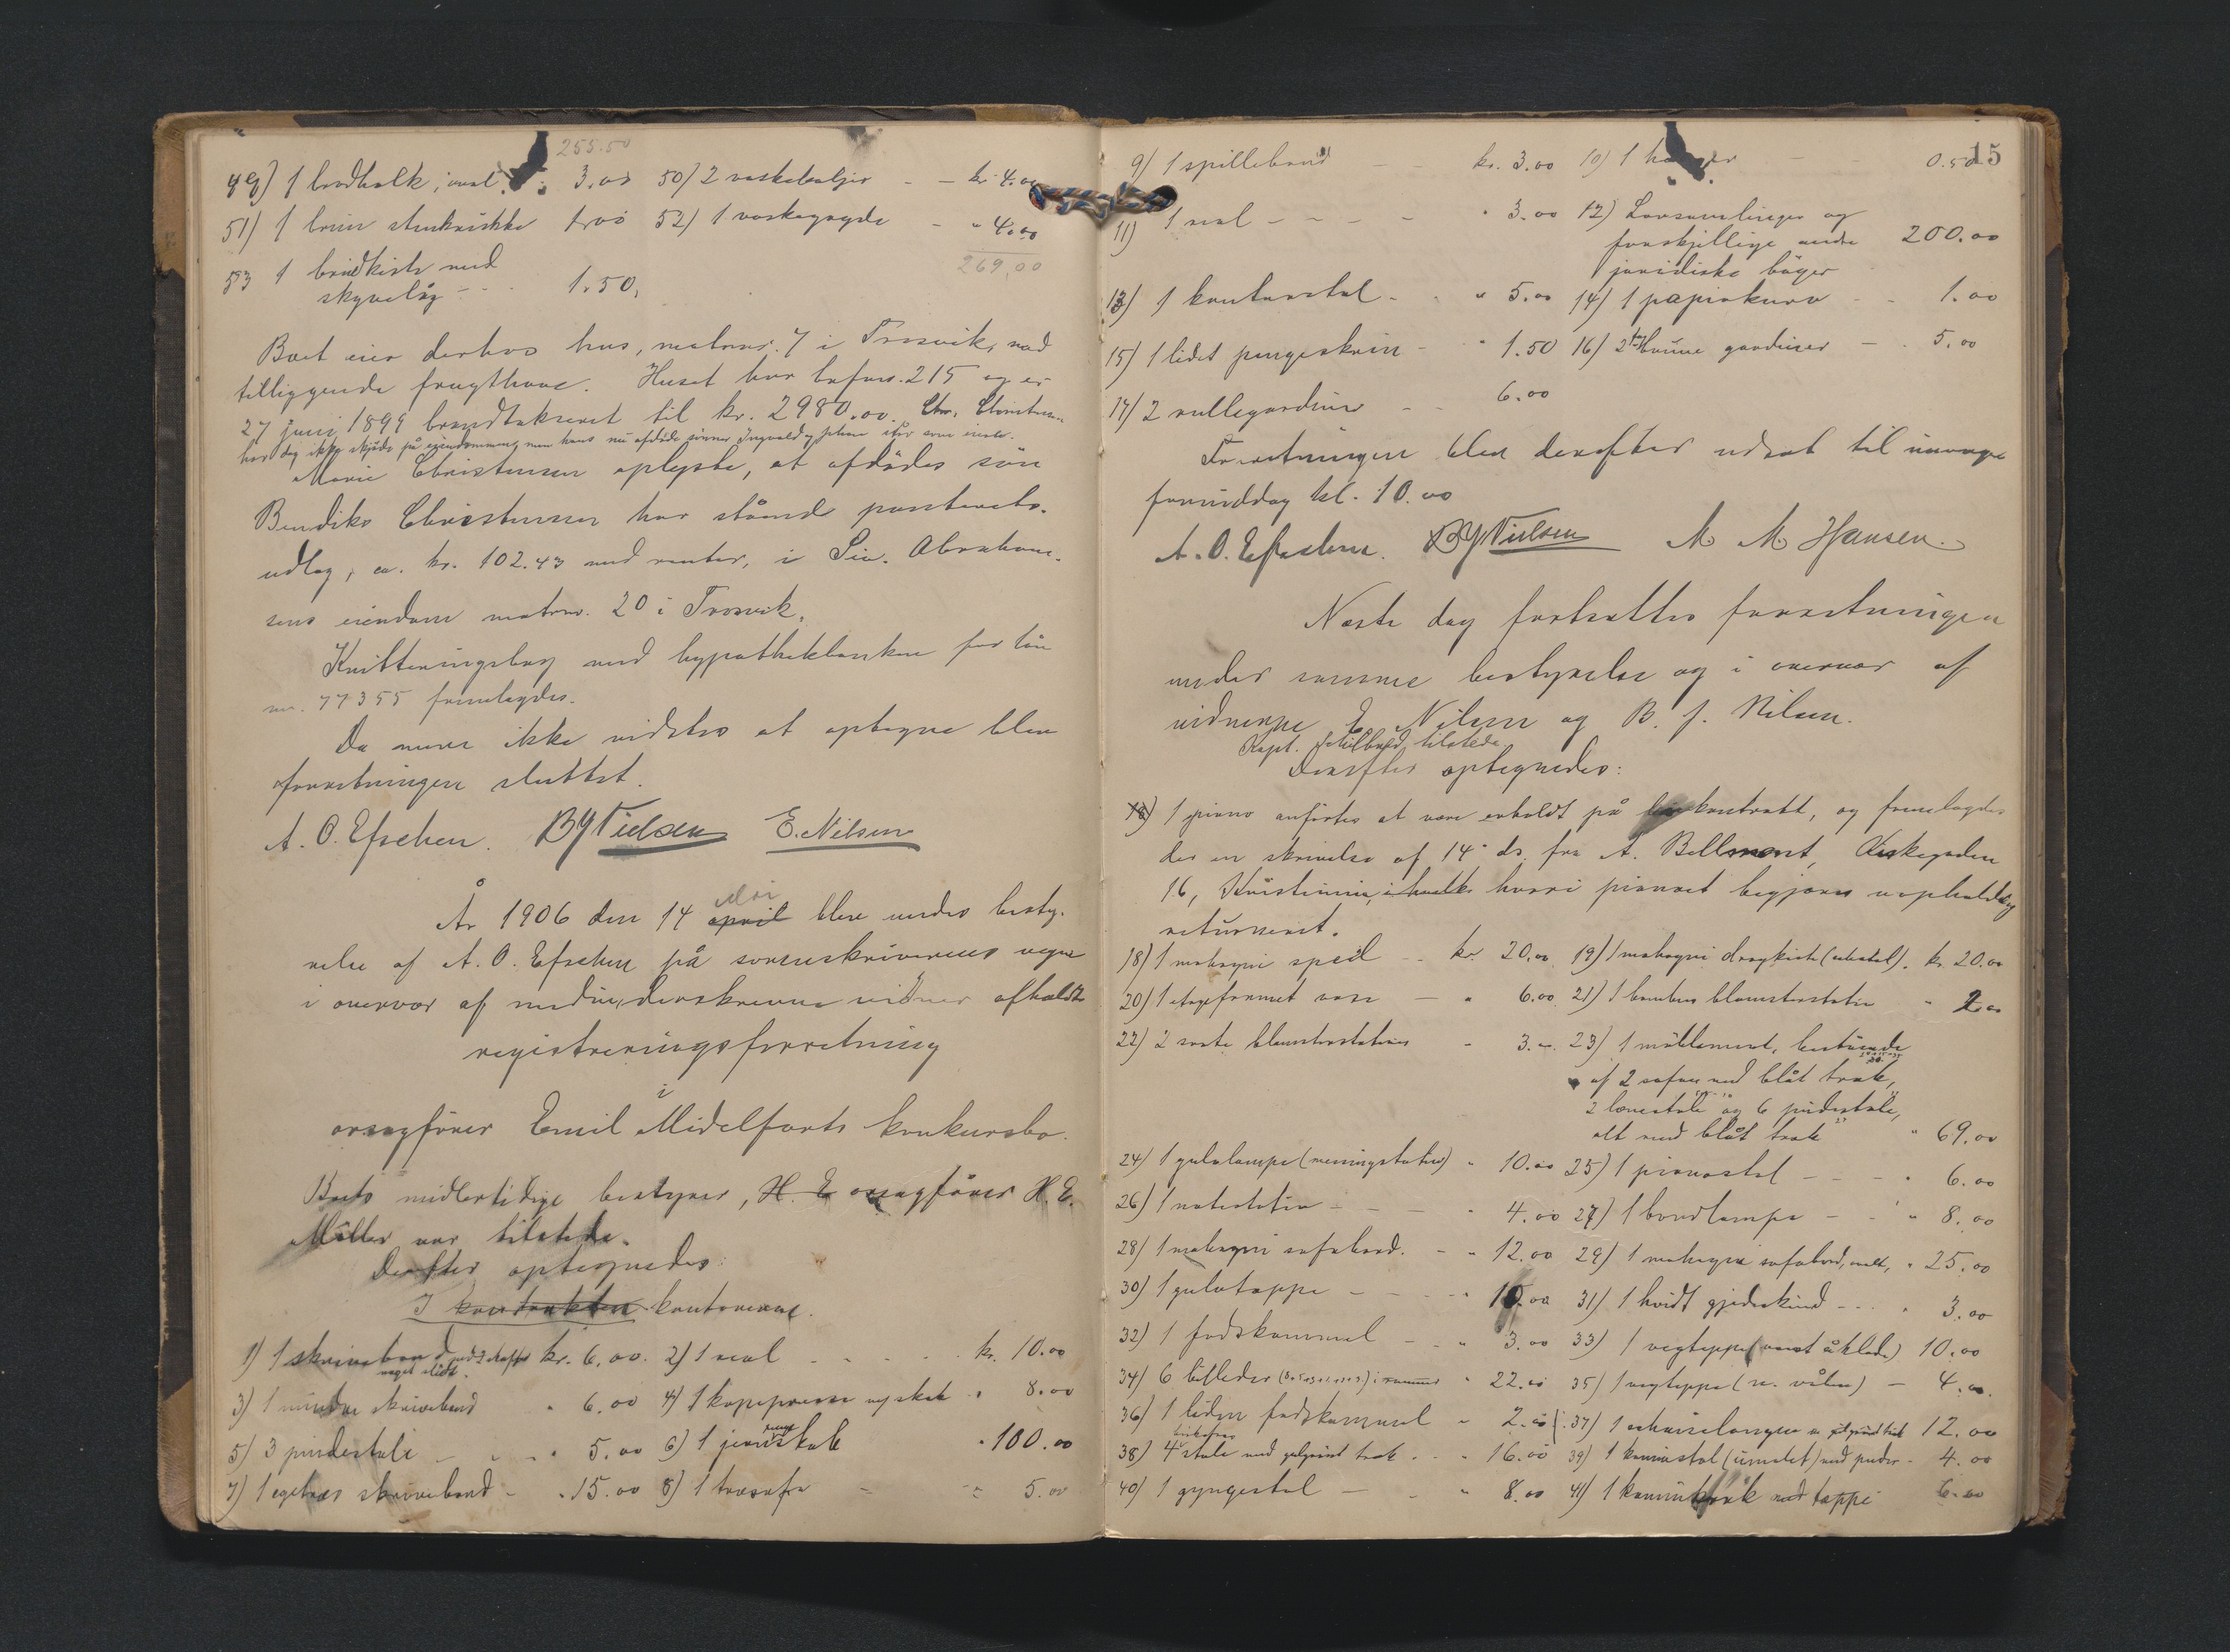 255.50
49) 1 3.00 50) 2 vaskebaljer - - kr. 4.00
51) 1 brun stenkrukke 1.00 52) 1 vaskegryde - " 4.00
269.00
53 1 med
skyvelåg - - 1.50,
Boet eier derhos hus, matrnr. 7 i Trosvik, med
tilliggende frugthave. Huset har brfors. 215 og er
27 juni 1899 brandtakseret til kr. 2980.00. Chr. Christensen
har dog ikke skjöde på eiendommen, men hans nu afdöde sönner Ingvald og Johan står som eiere.
Marie Christensen oplyste, at afdödes sön
Bendiks Christensen har stående panterets-
udlæg, ca. kr. 102.43 med renter, i Sev. Abraham-
sens eiendom matrnr. 20 i Trosvik.
Kvitteringsbog med hypothekbanken for lån
nr. 77355 fremlagdes.
Da mere ikke vidstes at optegne blev
forretningen sluttet.
A. O. Efschen. B J Nielsen E. Nilsen
mai
År 1906 den 14 april blev under besty-
relse af A. O. Efschen på sorenskriverens vegne
i overvær af nedenunderskrevne vidner afholdt
registreringsforretning
i
orsagförer Emil Midelfarts konkursbo.
Boets midlertidige bestyrer, H. E orsagförer H. E.
Möller var tilstede.
Derefter optegnedes:
I kontrakten kontorerne.
1) 1 skrivebord med 2 kr. 6.00. 2) 1 reol - - - kr. 10.00
noget slidt.
3) 1 mindre skrivebord " 6.00 4) 1 kopipresse og skab " 8.00
5) 3 pindestole - - " 5.00 6) 1 jern penge skab " 100.00
7) 1 egetræs skrivebord - " 15.00 8) 1 træsofa - " 5.00
15
9) 1 spillebord - - kr. 3.00 10) 1 - 0.50
11) 1 reol - - - - " 3.00 12) Lovsamlinger og
forskjellige andre 200.00
juridiske böger
13) 1 kontorstol - - " 5.00 14) 1 papirkurv - - 1.00
15) 1 lidet pengeskrin - " 1.50 16) 2 fag brune gardiner - . 5.00
17) 2 rullegardiner - - 6.00
Forretningen blev derefter udsat til imorgen
formiddag kl. 10.00
A. O. Efschen. B J Nielsen M M Hansen.
Næste dag fortsattes forretningen
under samme bestyrelse og i overvær af
vidnerne E. Nilsen og B. J. Nilsen.
Kapt. tilstede
Derefter optegnedes:
18) 1 piano anförtes at være erholdt på leiekontrakt, og fremlagdes
der en skrivelse af 14 ds. fra A. Bellmont, Kirkegaden
16, Kristiania, i hvilke hvori pianoet begjæres uopholdelig
returneret.
18) 1 mahogni speil - kr. 20.00 19) 1 mahogni dragkiste (udskåret). kr. 20.00
20) 1 etageformet vase - " 6.00 21) 1 bambus blomsterstativ " 2.00
22) 2 sorte blomsterstativer - 3.00. 23) 1 möblement, bestående
af 2 sofaer med blåt træk,
2 lænestole og 6 pindestole,
alt med blåt træk " 69.00
24) 1 gulvlampe (messingstativ) " 10.00 25) 1 pianostol - - - " 6.00
26) 1 nodestativ - - - " 4.00 27) 1 bordlampe - - " 8.00
28) 1 mahogni sofabord. - " 12.00 29) 1 mahogni sofabord, ovalt, " 25.00
30) 1 gulvteppe - - - " 10.00 31) 1 hvidt gjedeskind - - " 3.00
32) 1 fodskammel - " 3.00 33) 1 vegteppe (vævet åklæde) 10.00
34) 6 billeder i rammer " 22.00 35) 1 vegteppe - 4.00.
36) 1 liden fodskammel " 2.00 37) 1 chaiselongue 12.00
38) 4 stole med træk . " 16.00 39) 1 kurvestol (umalet) med puder - 4.00
40) 1 gyngestol - - " 8.00 41) 1 med tæppe 6.00